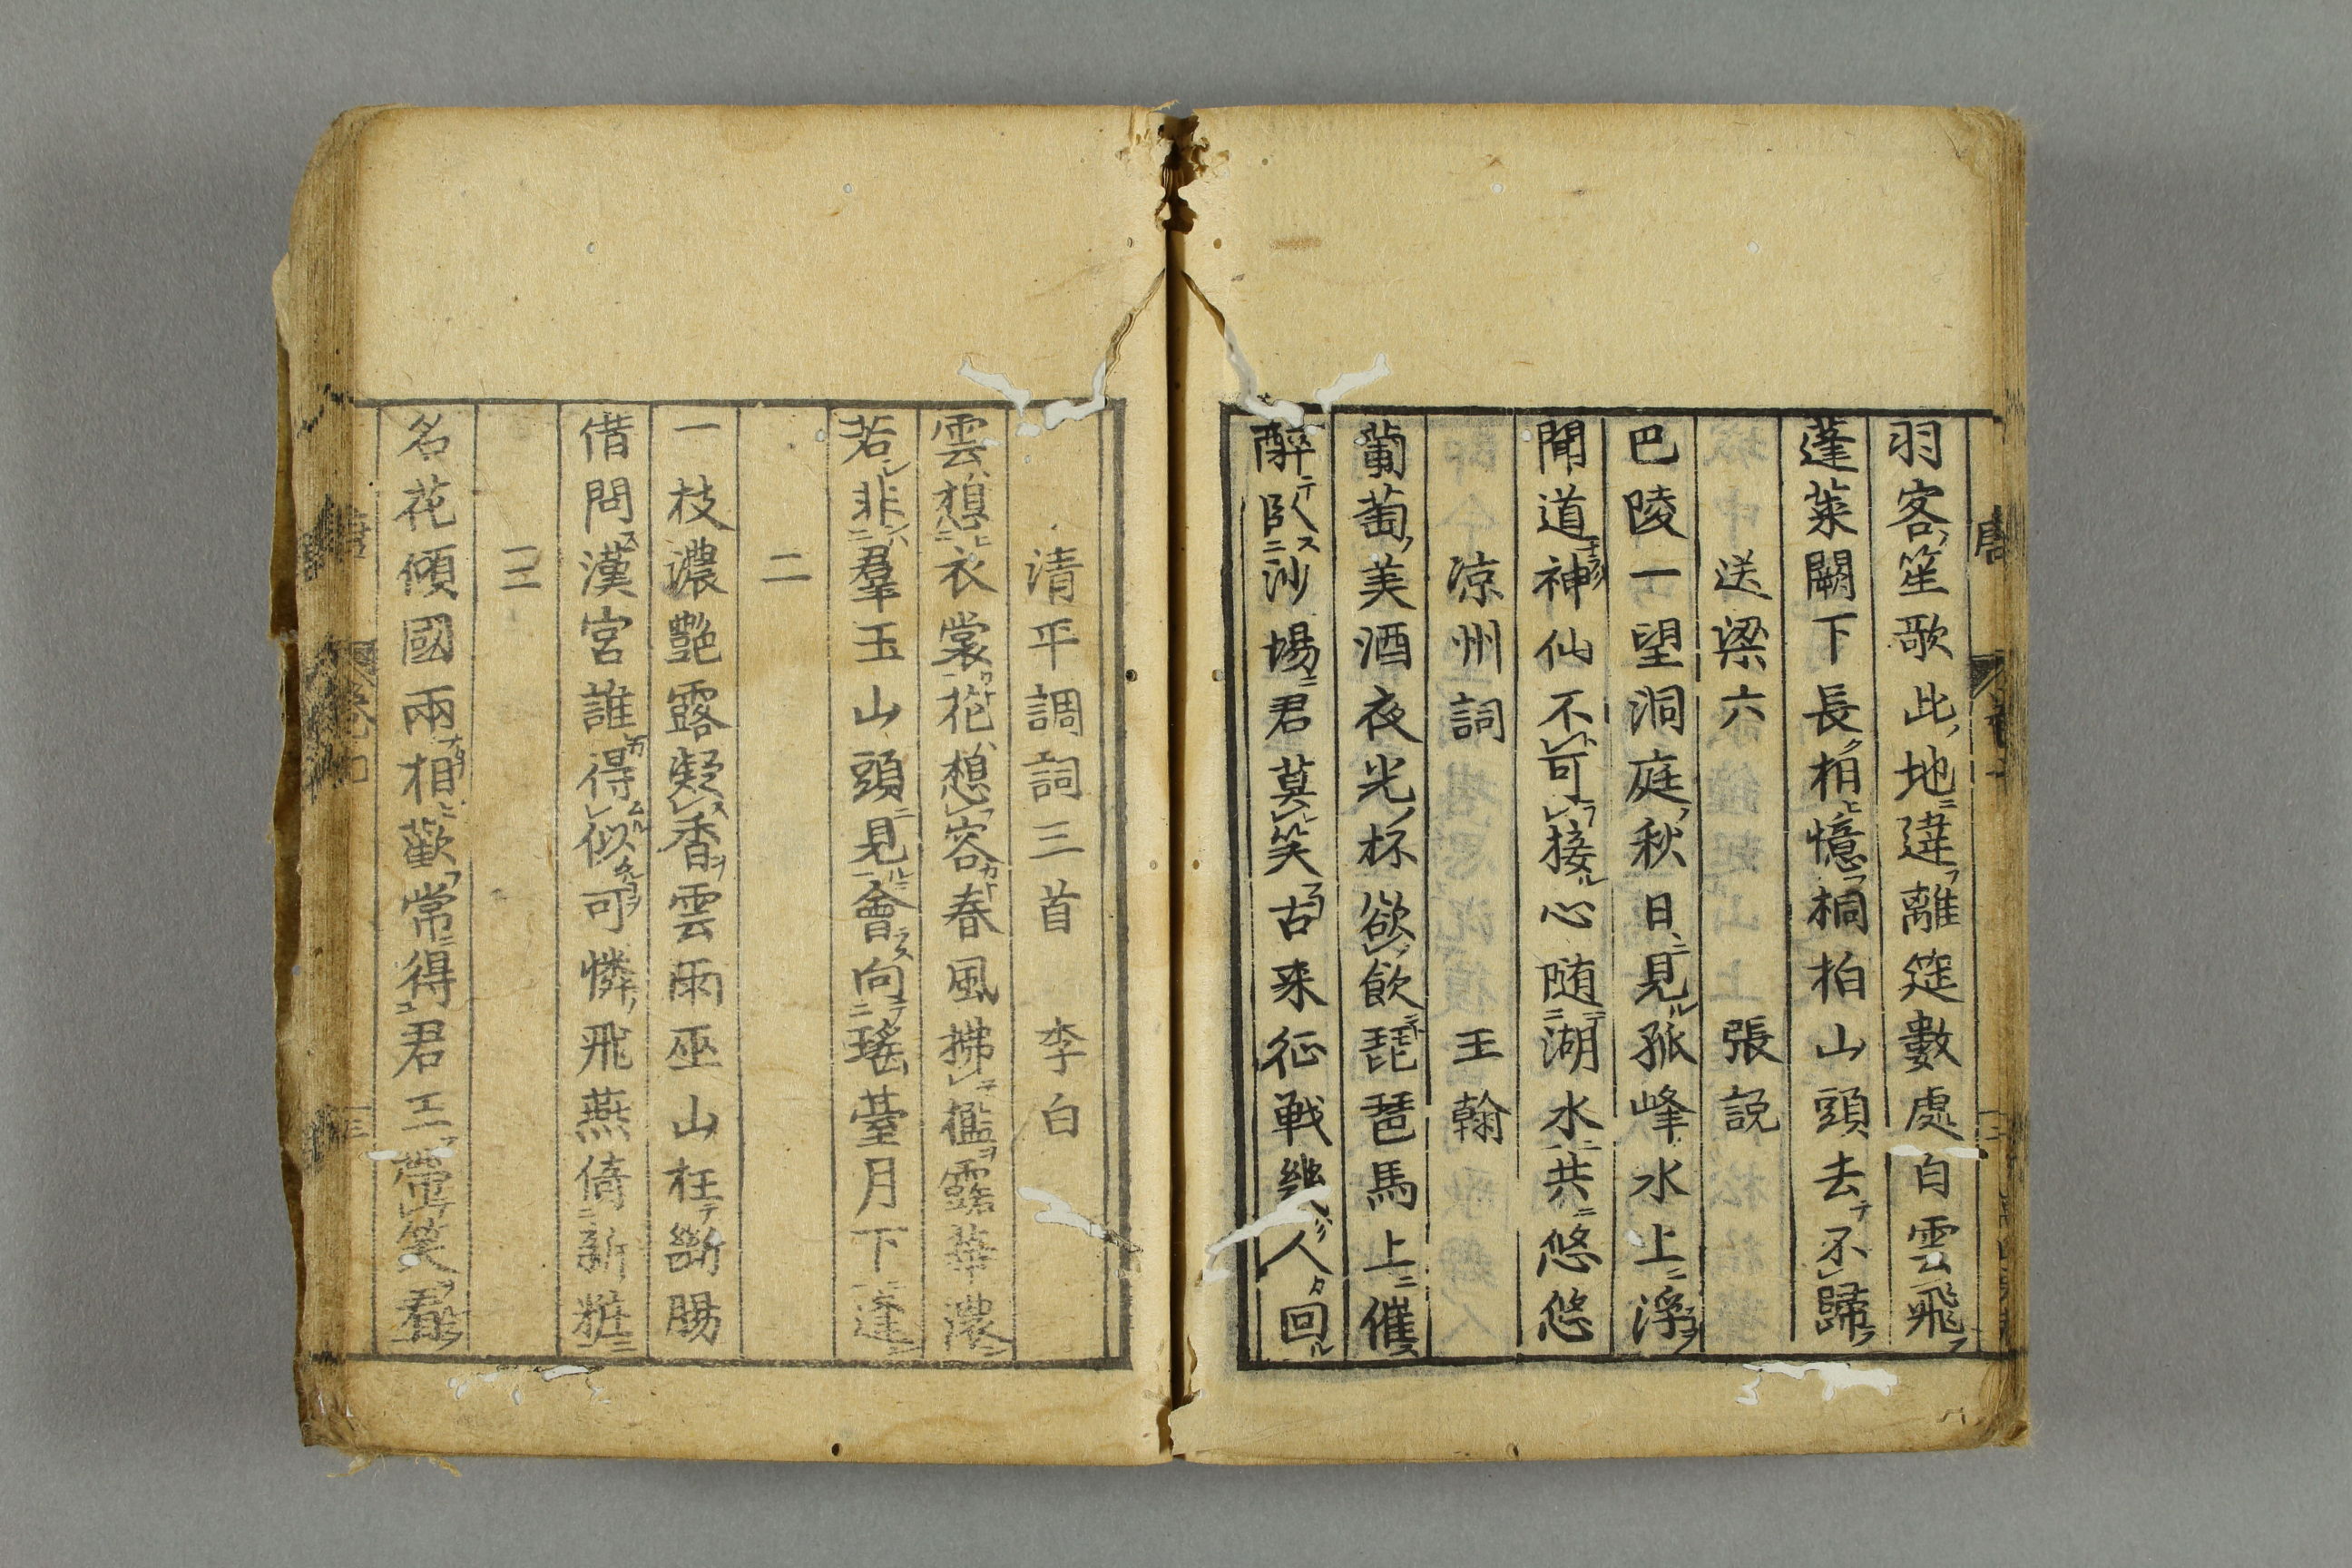 羽客笙歌此地違離筵數處白雲飛
蓬萊闕下長相憶桐柏山頭去不歸
送梁六　張說
巴陵一望洞庭秋日見孤峰水上浮
聞道神仙不可接心随湖水共悠悠
涼州詞　王翰
葡萄美酒夜光杯欲飲琵琶馬上催
醉臥沙場君莫笑古来征戦幾人回
清平調詞三首　李白
雲想衣裳花想容春風拂檻露華濃
若非羣玉山頭見會向瑤臺月下逢
二
一枝濃艷露凝香雲雨巫山枉斷腸
借問漢宮誰得似可憐飛燕倚新粧
三
名花傾國兩相歡常得君王帶笑看